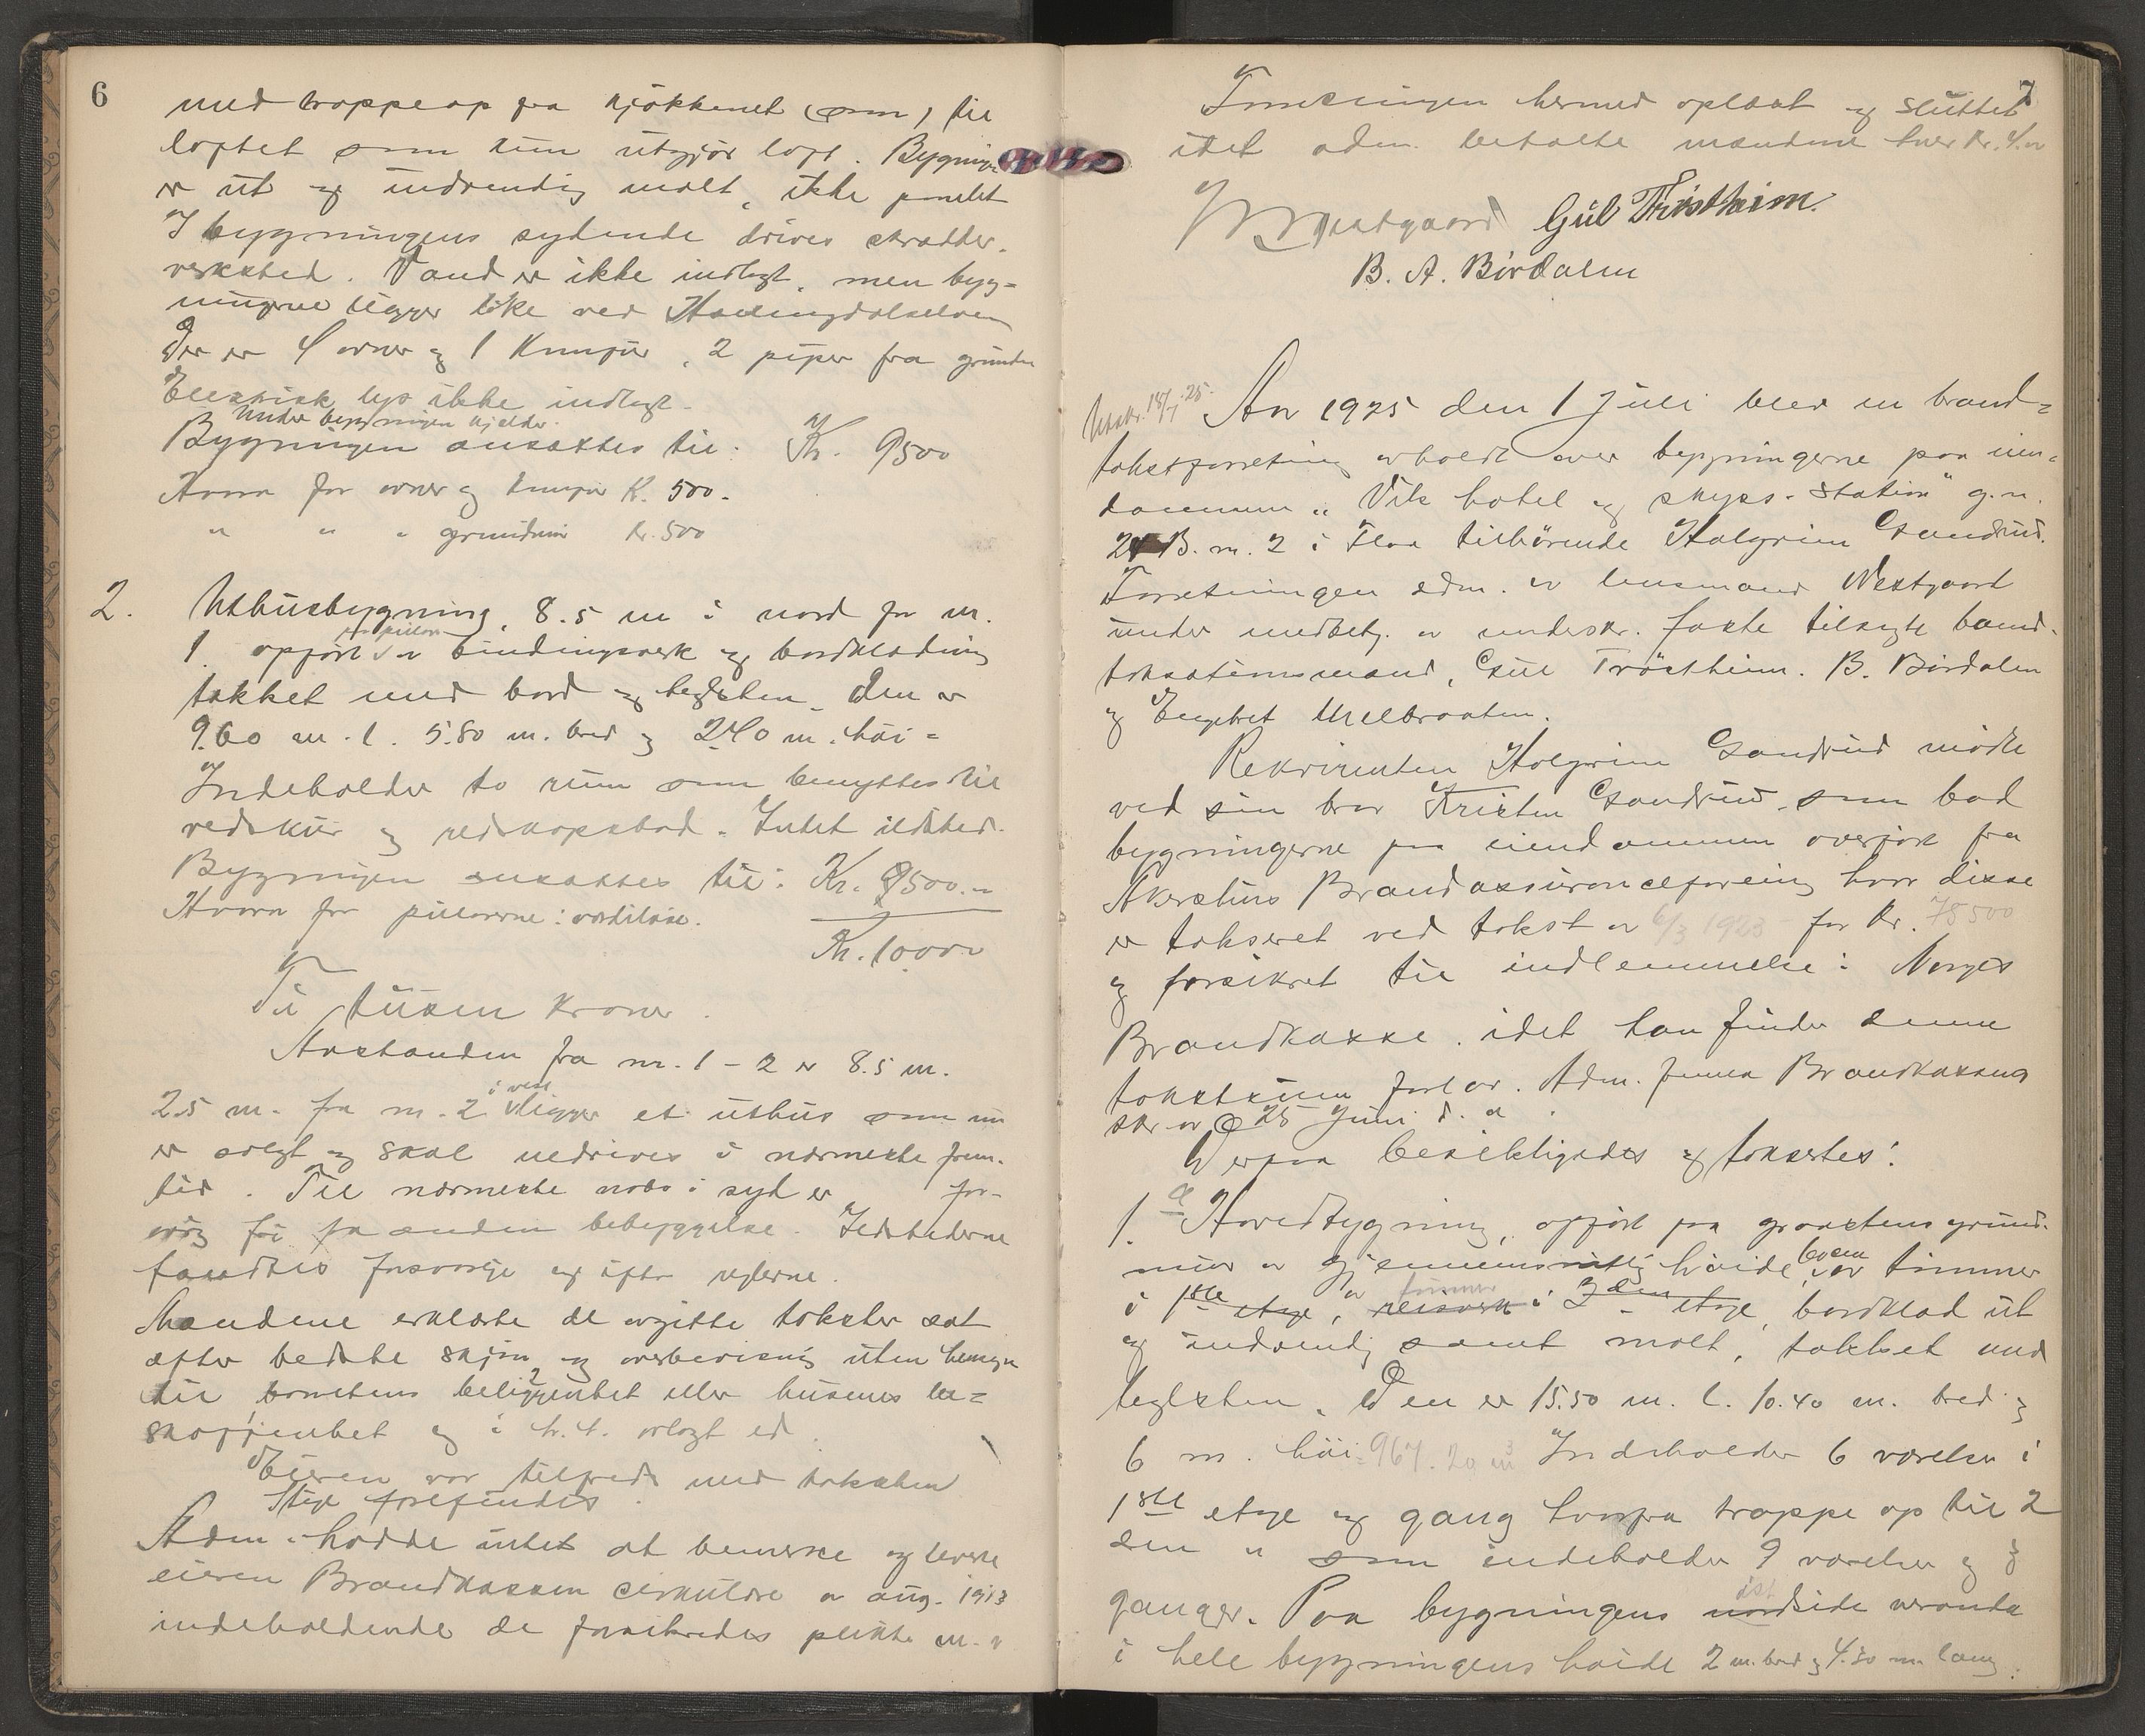 6
med trappe op fra kjökkenet (som) til
loftet som kun utgjör loft. Bygningen
er ut og indvendig malt, ikke panelet
I bygningens sydende drives skrædder-
verksted. Vand er ikke indlagt, men byg-
ningerne ligger like ved Hallingdalselven
Der er 4 ovner og 1 Komfur, 2 piper fra grunden
Elektrisk lys ikke indlagt.
Under bygningen kjelder.
Bygningen ansættes til: Kr. 9500
Hvorav for ovner og komfur K. 500.
" " " grundmur Kr. 500
2. Uthusbygning, 8.5 m i nord for nr.
paa pillarer
1. opført av bindingsverk og bordklædning
takket med bord og teglsten. Den er
9.60 m. l. 5.80 m. bred og 2.40 m. høi =
Indeholder to rum som benyttes til
vedskur og redskapsbod. Intet ildsted.
Bygningen ansættes til: Kr. 500.-
Hvorav for pillarerne: værdiløse.
Kr. 10000
Ti tusen kroner.
Avstanden fra nr. 1 - 2 er 8.5 m.
i vest
25 m. fra nr. 2 ligger et uthus som nu
er solgt og skal nedrives i nærmeste frem-
tid. Til nærmeste nabo i syd er for-
øvrig fri fra anden bebyggelse. Ildstederne
fandtes forsvarlige og efter reglerne.
Mændene erklærte de avgitte takster sat
efter bedste skjøn og overbevisning uten hensyn
til tomtens beliggenhet eller husenes be-
skaffenhet og i h.t. avlagt ed.
Eieren var tilfreds med taksten
Stige forefindes.
Adm. hadde intet at bemerke og leverte
eieren Brandkassen cirkulære av aug. 1913
indeholdende de forsikredes plikter m. v
7
Forretningen hermed oplæst og sluttet
idet adm. betalte mændene hver Kr. 4.00
Westgaard Gul Trøstheim.
B. A. Bördalen
Utskr. 18/7 25.
Aar 1925 den 1 Juli blev en brand-
takstforretning avholdt over bygningerne paa eien-
dommen "Vik hotel og skyss-station" g.n.
24 B. nr. 2 i Flaa tilhørende Halgrim Gandrud.
Forretningen adm. av lensmand Westgaard
under medbetj. av underskr. faste tilsagte brand-
takstationsmænd, Gul Tröstheim. B. Bördalen
og Engebret Melbraaten.
Rekvirenten Halgrim Gandrud mödte
ved sin bror Kristen Gandrud som bad
bygningerne paa eiendommen overført fra
Akershus Brandassuranceforening hvor disse
er taksert ved takst av 6/3 1923 for Kr. 78500
og forsikret til indlemmelse i Norges
Brandkasse. idet han finder denne
takstsum forlav. Adm. fremla Brandkassens
skr. av 25 Juni d. a.
Derpaa besiktigedes og takseredes:
1. a Hovedbygning, opført paa graastens grund-
mur av gjennemsnitlig høide 60 cm av timmer
tømmer
i 1ste etage, av reisverk i 2den etage, bordklæd ut
og indvendig samt malt, takket med
teglsten. Den er 15.50 m. l. 10.40 m. bred og
6 m. høi = 967.20 m3 Indeholder 6 værelser i
1ste etage og gang hvorfra trappe op til 2
den " som indeholder 9 værelser og 3
øst
ganger. Paa bygningens nordside veranda
i hele bygningens høide 2 m. bred og 4.80 m lang.